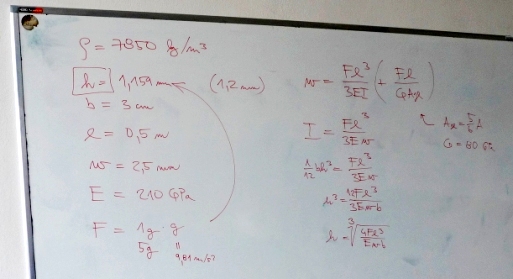 ρ = 7850 kg/m³
h = 1,159 mm (1,2 mm)
b = 3 cm
l = 0,5 m
w = 2,5 mm
E = 210 GPa
F = 1g · g
5g 9,81 m/s²
w = Fl³/3EI (+ Fl/GAx)
I = Fl³/3Ew
A = 5/6 A
G = 80 GPa
1/12 bh³ = Fl³/3Ew
h³ = 12Fl³/3Ewb
h = ³√4Fl³/Ewb